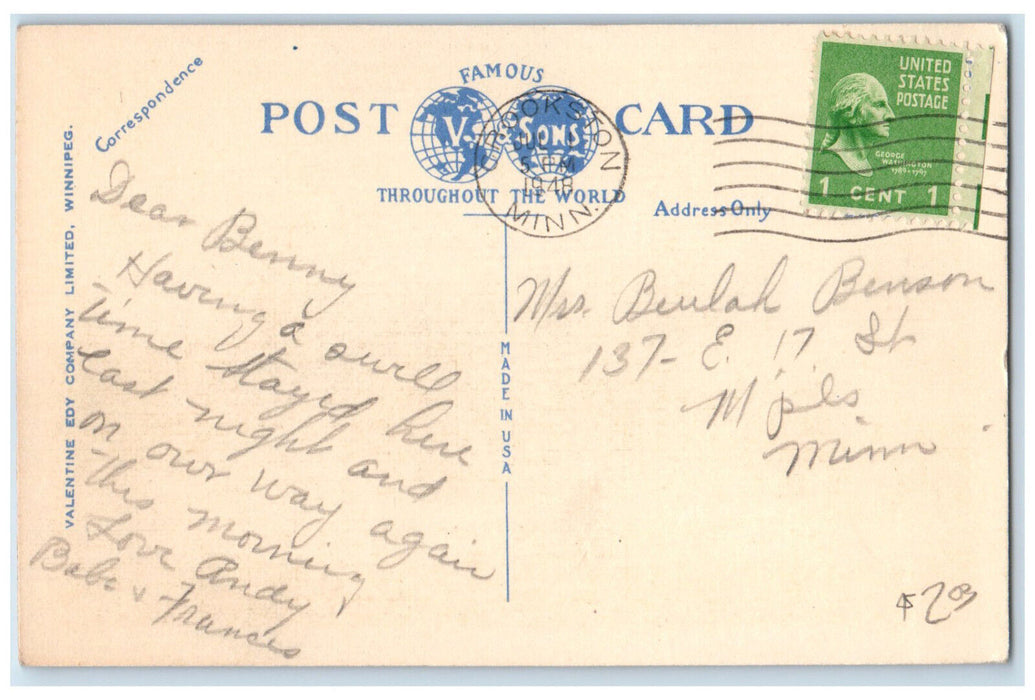 Correspondence
FAMOUS
POST CARD
V. & Sons
THROUGHOUT THE WORLD
Address Only
CROOKSTON
5 PM
1948
MINN.
UNITED
STATES
POSTAGE
GEORGE
WASHINGTON
1789-1797
1 CENT 1
VALENTINE EDY COMPANY LIMITED, WINNIPEG.
MADE IN USA
Dear Benny
Having a swell
time stayed here
last night and
on our way again
this morning
Love Andy
Babe & Frances
Mrs. Beulah Benson
137- E. 17 St
Mpls
Minn